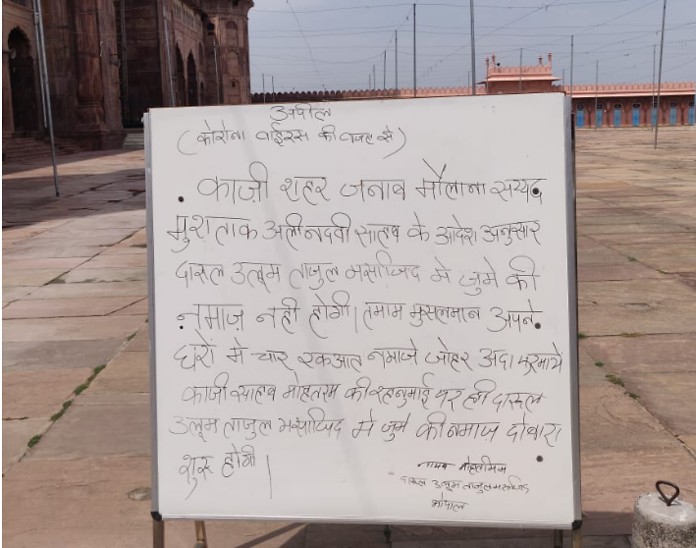 अपील
(कोरोना वाईरस की वजह से)
काज़ी शहर जनाब मौलाना सय्यद
मुशताक अली नदवी साहब के आदेश अनुसार
दारूल उलूम ताजुल मसाजिद मे जुमे की
नमाज़ नही होगी। तमाम मुसलमान अपने
घरों मे चार रकआत नमाजे जोहर अदा फरमाये
काजी साहब मोहतरम की रहनुमाई पर ही दारूल
उलूम ताजुल मसाजिद मे जुमे की नमाज दोबारा
शुरू होगी।
नायब मोहतमिम
दारूल उलूम ताजुल मसाजिद
भोपाल